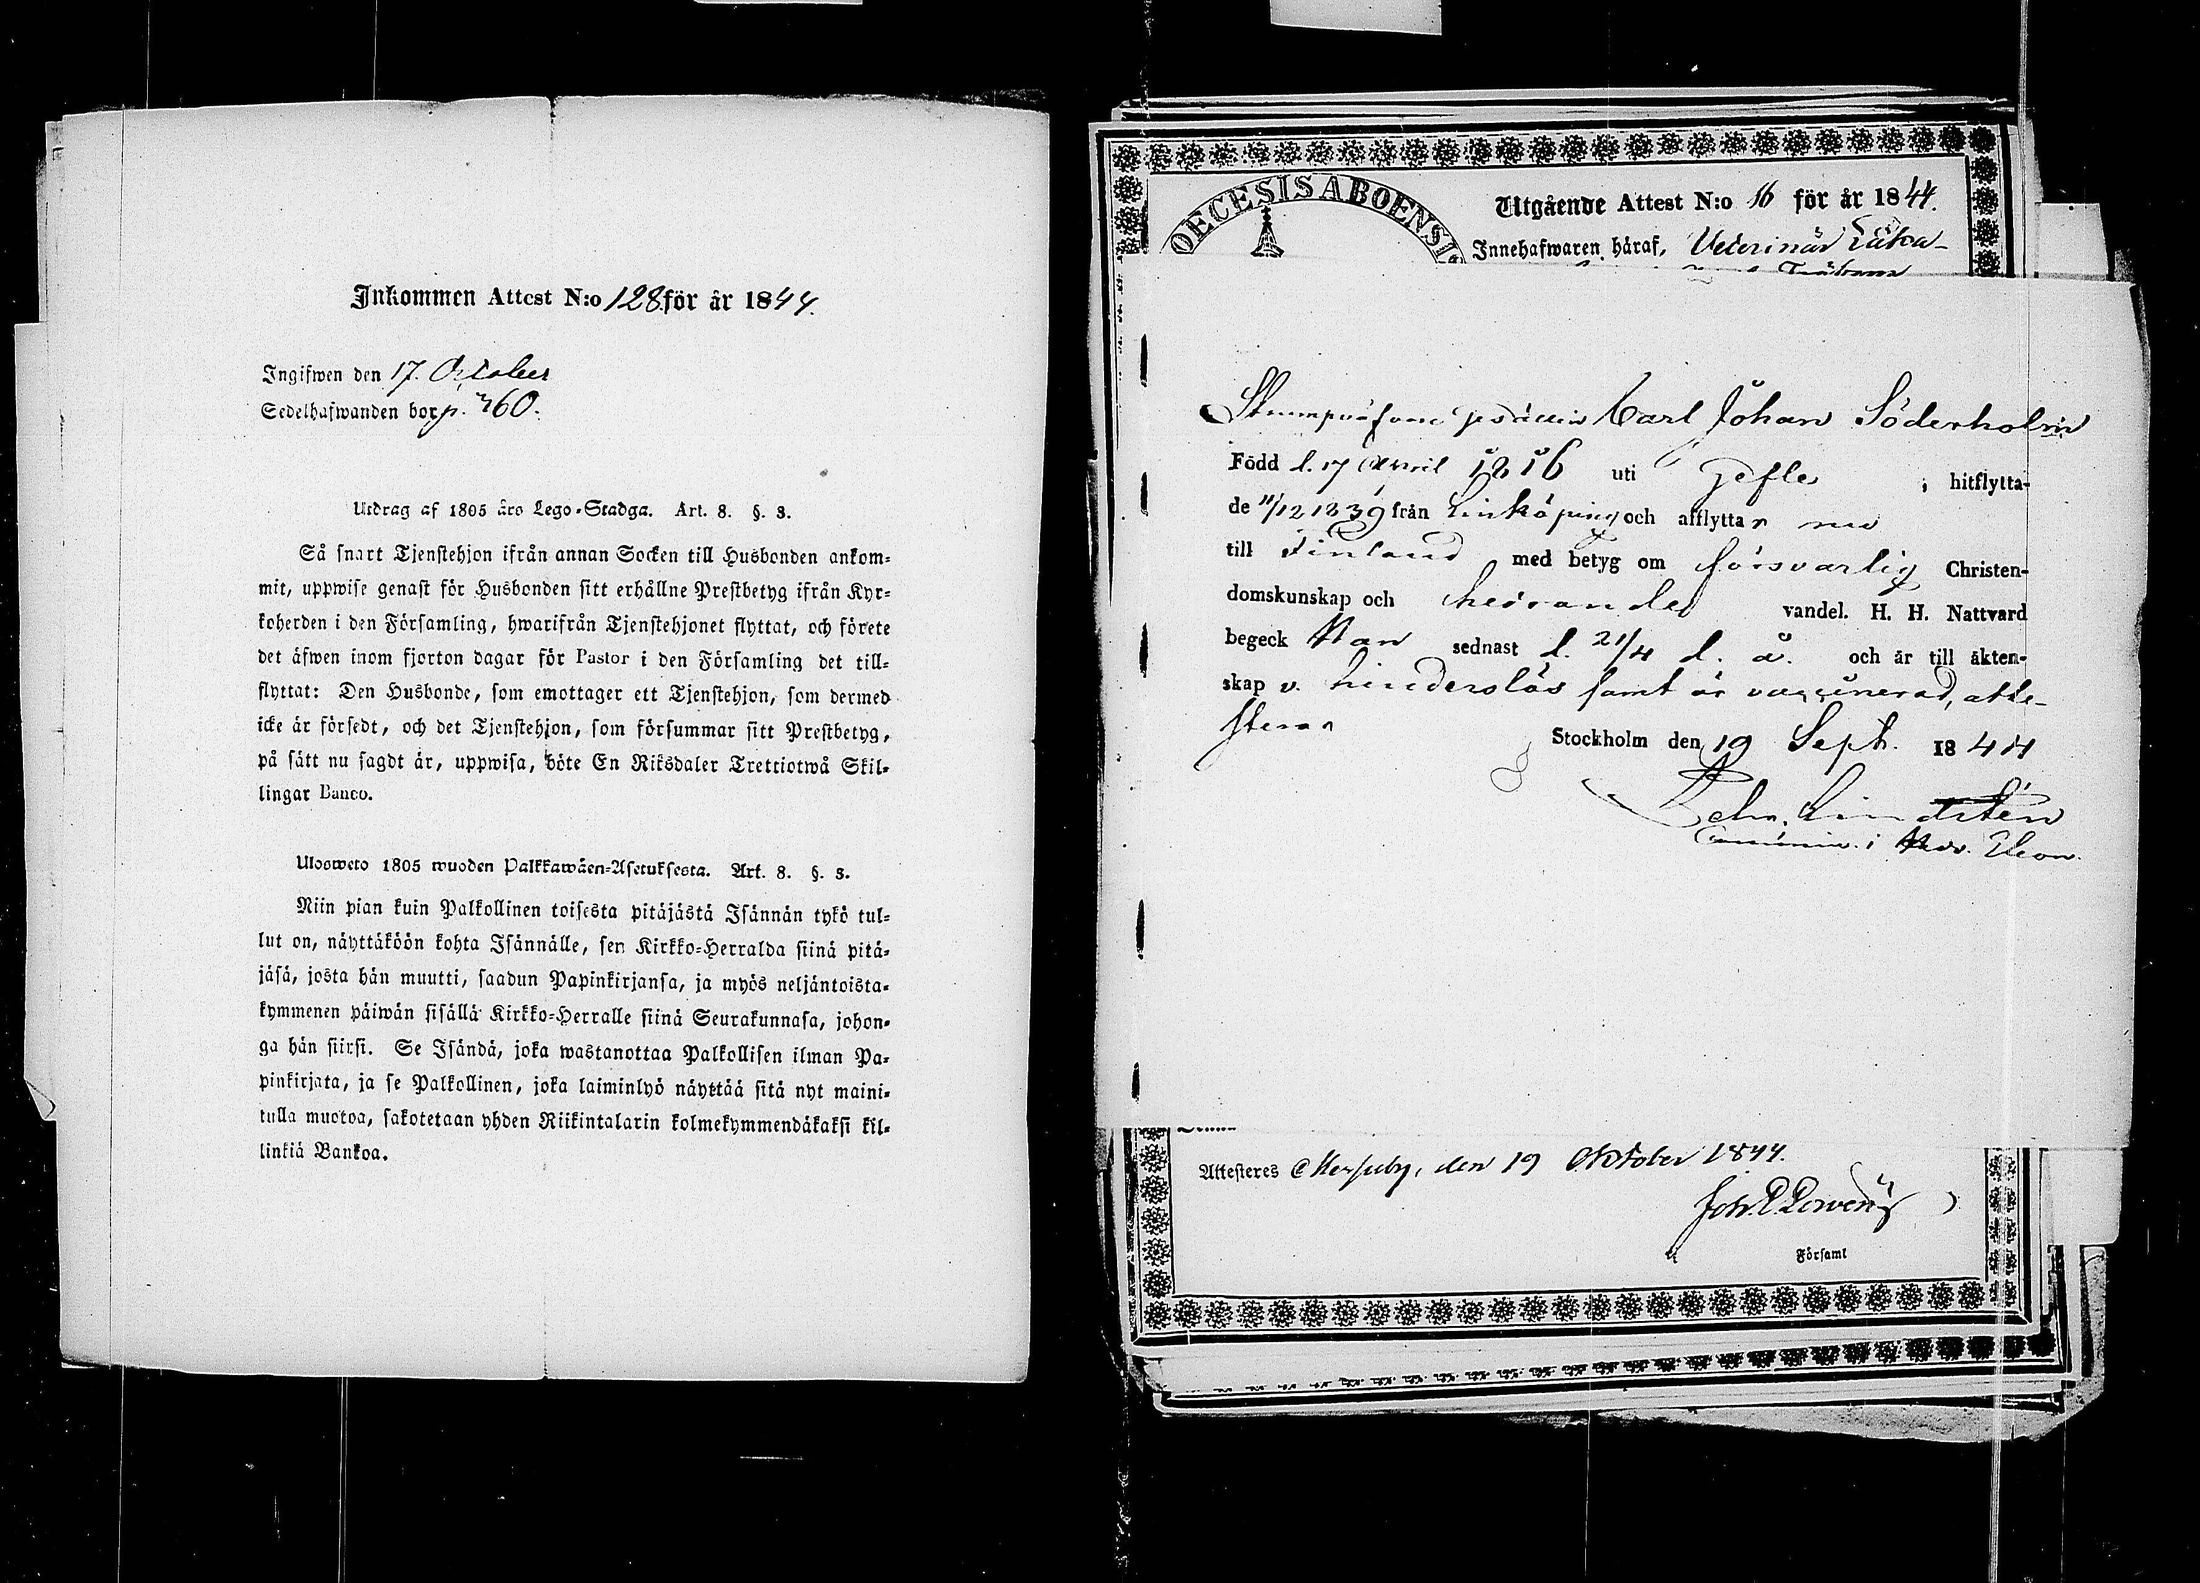 Inkommen Attest N:o 128 för år 1844.
Ingifwen den 17. October
Sedelhafwanden bor p. 360.
Utdrag af 1805 års Lego-Stadga. Art. 8. §. 3.
Så snart Tjenstehjon ifrån annan Socken till Husbonden ankom-
mit, uppwise genast för Husbonden sitt erhållne Prestbetyg ifrån Kyr-
koherden i den Församling, hwarifrån Tjenstehjonet flyttat, och förete
det äfwen inom fjorton dagar för Pastor i den Församling det till-
flyttat: Den Husbonde, som emottager ett Tjenstehjon, som dermed
icke är försedt, och det Tjenstehjon, som försummar sitt Prestbetyg,
på sätt nu sagdt är, uppwisa, böte En Riksdaler Trettiotwå Skil-
lingar Banco.
Ulosweto 1805 wuoden Palkkawäen-Asetuksesta. Art. 8. §. 3.
Niin pian kuin Palkollinen toisesta pitäjästä Isännän tykö tul-
lut on, näyttäköön kohta Isännälle, sen Kirkko-Herralda siinä pitä-
jäsä, josta hän muutti, saadun Papinkirjansa, ja myös neljäntoista-
kymmenen päiwän sisällä Kirkko-Herralle siinä Seurakunnasa, johon-
ga hän siirsi. Se Isändä, joka wastanottaa Palkollisen ilman Pa-
pinkirjata, ja se Palkollinen, joka laiminlyö näyttää sitä nyt maini-
tulla muotoa, sakotetaan yhden Riikintalarin kolmekymmendäkaksi kil-
linkiä Bankoa.
OECESIS ABOENSI
Utgående Attest N:o 16 för år 1844.
Innehafwaren häraf, Veterinär Läka-
Carl Johan Söderholm
Född d. 17 April 1816 uti Gefle, hitflytta-
de 11/12 1839 från Linköping och afflyttar nu
till Finland med betyg om försvarlig Christen-
domskunskap och hedrande vandel. H. H. Nattvard
begeck Han sednast d. 21/4 d. å. och är till äkten-
skap v. hinderslös samt är vaccinerad, atte-
sterar
Stockholm den 19 Sept. 1844
Lindsten
i Eleon.
Attesteres den 19 Oktober 1844.
Joh.
Församl